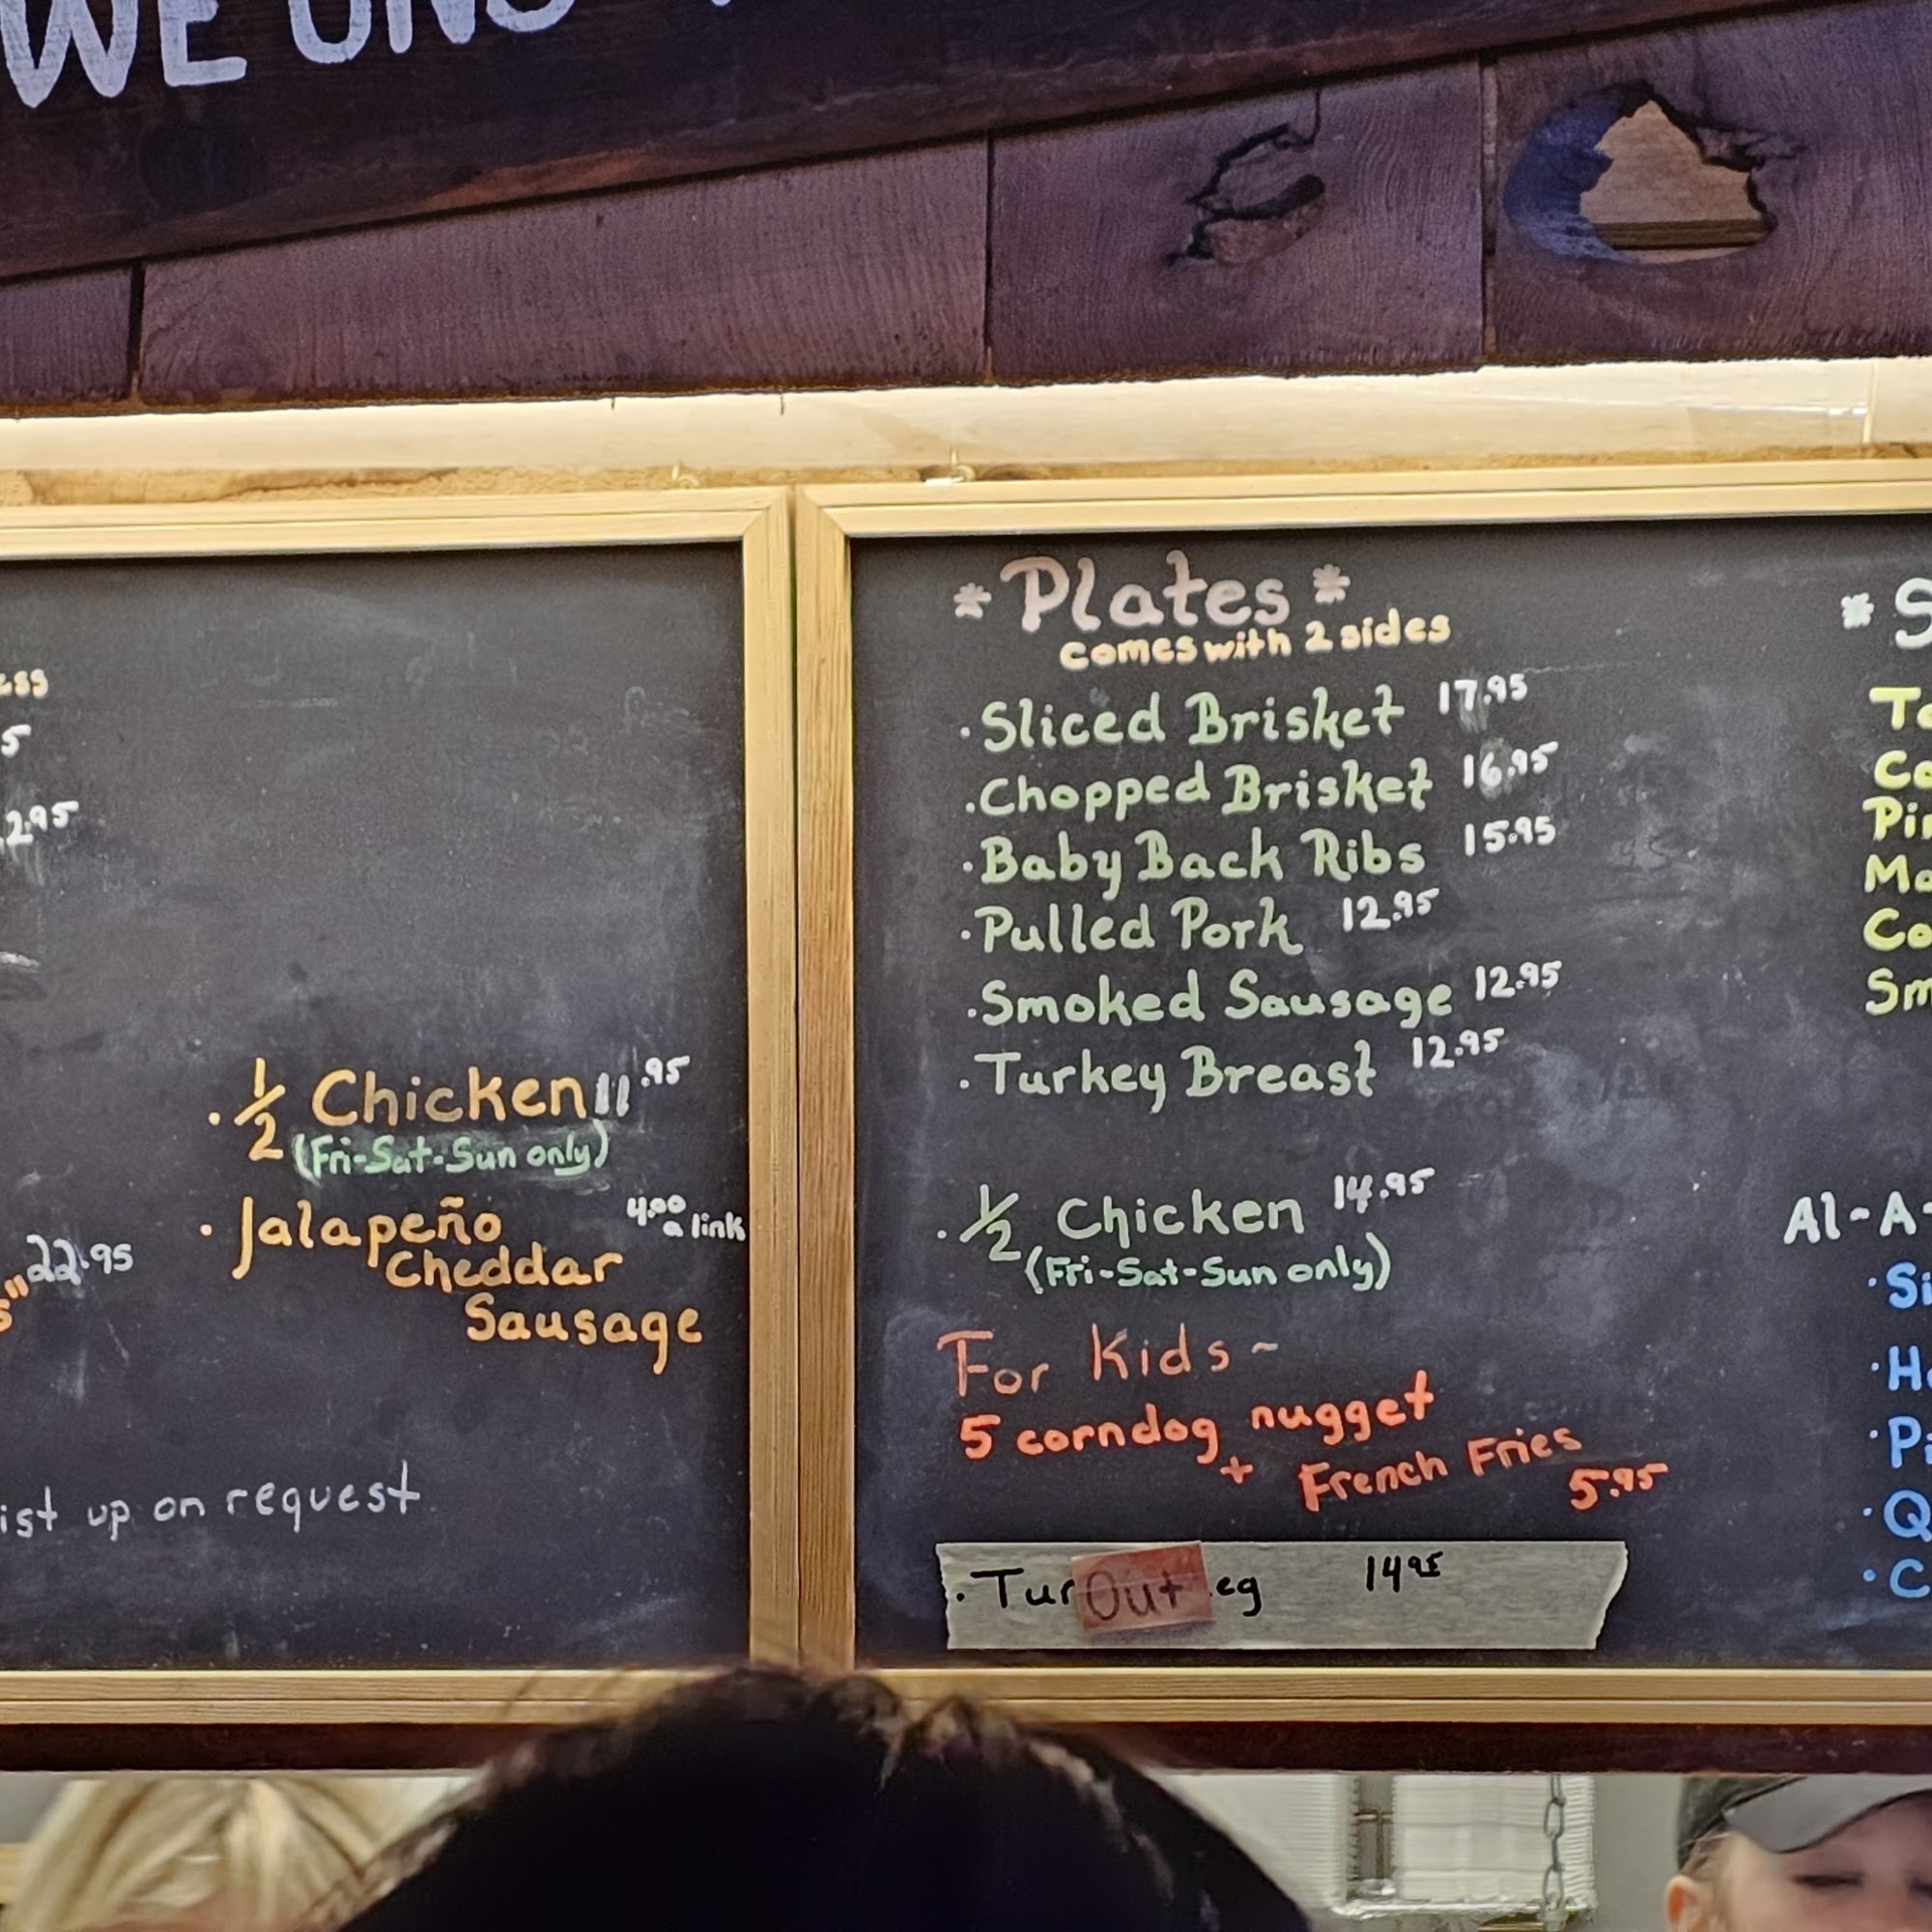 WE
2.95
22.95
· 1/2 Chicken 11.95
(Fri-Sat-Sun only)
· Jalapeño 4.00 a link
Cheddar
Sausage
up on request
* Plates *
comes with 2 sides
· Sliced Brisket 17.95
· Chopped Brisket 16.95
· Baby Back Ribs 15.95
· Pulled Pork 12.95
· Smoked Sausage 12.95
· Turkey Breast 12.95
· 1/2 Chicken 14.95
(Fri-Sat-Sun only)
For Kids~
5 corndog nugget
+ French Fries
5.95
· Tur Out eg 14.95
* S
Al-A-